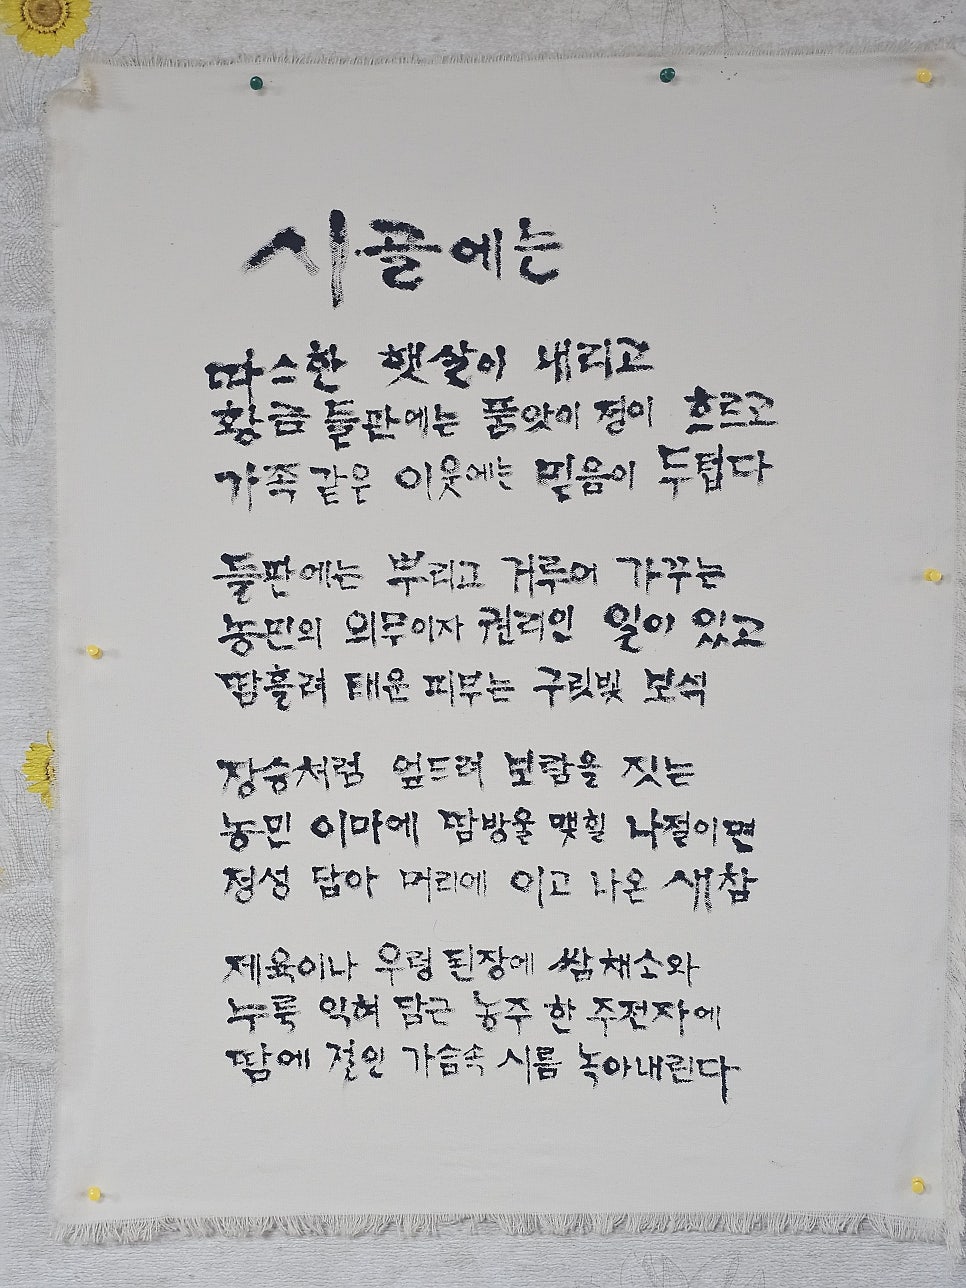 시골에는
따스한 햇살이 내리고
황금 들판에는 품앗이 정이 흐르고
가족 같은 이웃에는 믿음이 두텁다
들판에는 뿌리고 거루어 가꾸는
농민의 의무이자 권리인 일이 있고
땀흘려 태운 피부는 구릿빛 보석
장승처럼 엎드려 보람을 짓는
농민 이마에 땀방울 맺힐 나절이면
정성 담아 머리에 이고 나온 새참
제육이나 우렁 된장에 쌈채소와
누룩 익혀 담근 농주 한 주전자에
땀에 절인 가슴속 시름 녹아내린다